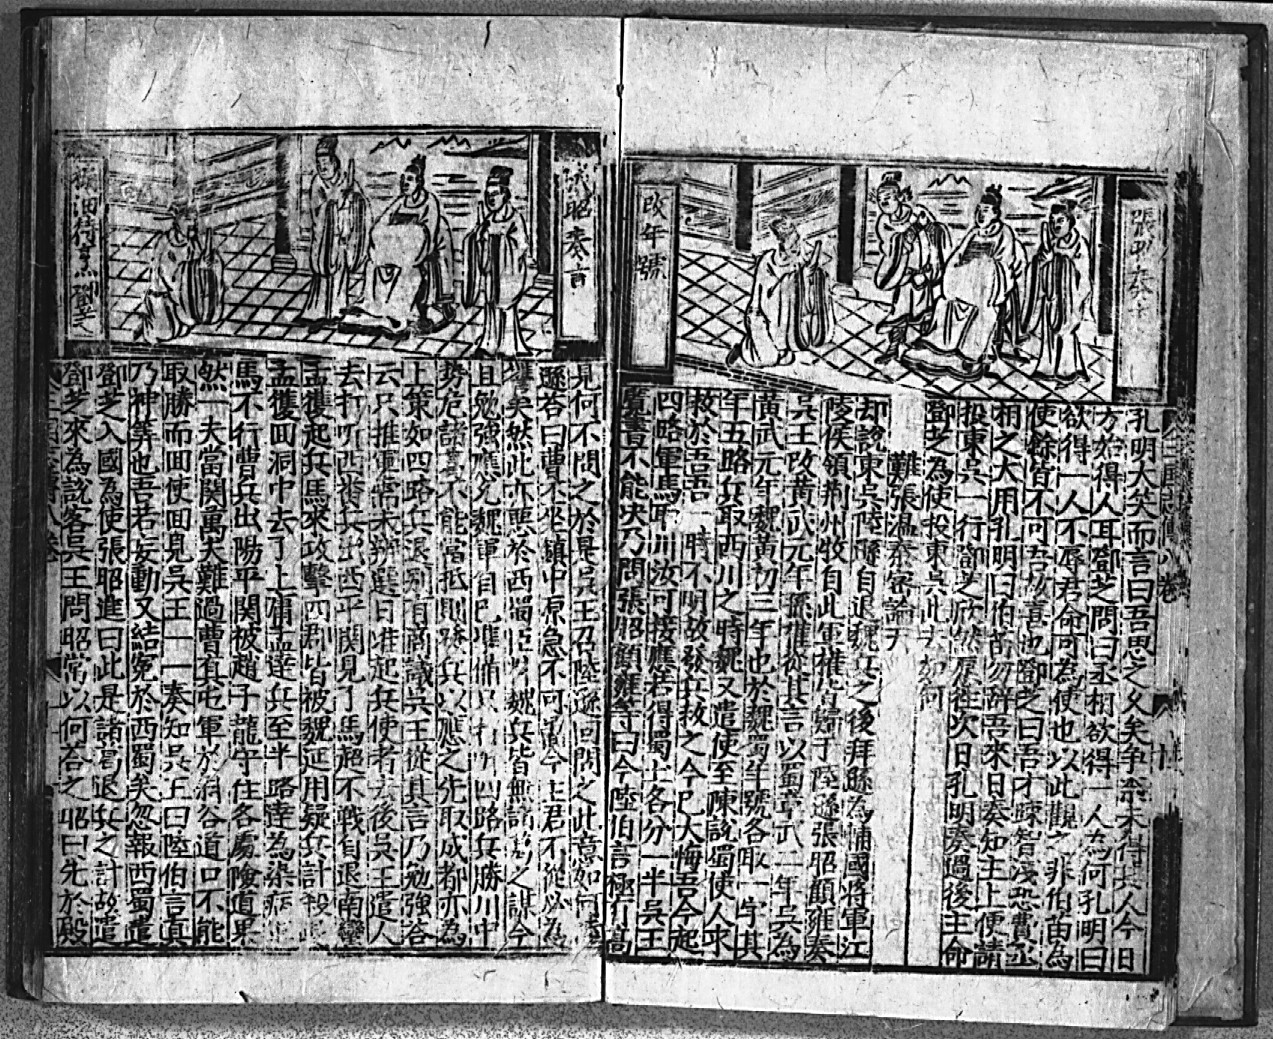 改年號
孔明大笑而言曰吾思之久矣爭奈未得其人今日
方始得人耳鄧芝問曰丞相欲得一人為何孔明曰
欲得一人不辱君命可為使也以此觀之非伯苗為
使餘皆不可吾故喜也鄧芝曰吾才疎智淺恐費丞
相之大用孔明曰伯苗勿辭吾來日奏知主上便請
投東吳一行鄧芝欣然愿往次日孔明奏過後主命
鄧芝為使投東吳此去如何
難張溫秦宓論天
却說東吳陸遜自退魏兵之後拜遜為輔國將軍江
陵侯領荊州牧自此軍權皆歸于陸遜張昭顧雍奏
吳王改黃武元年孫權從其言以蜀章武二年吳為
黃武元年魏黃初三年也於魏蜀年號各取一字其
年五路兵取西川之時魏又遣使至陳說蜀使人求
救於吾吾一時不明故發兵救之今已大悔吾今起
四路軍馬取川汝可接應若得蜀土各分一半吳王
不能決乃問張昭顧雍等曰今陸伯言極有高
張昭奏言
見何不問之於是吳王召陸遜回問之此意如何
遜答曰曹丕坐鎮中原急不可圖今主君不從必為
讐矣然此亦惡於西蜀臣以魏兵皆無諸葛之謀今
且勉強應允魏軍自己準備只打聽四路兵勝川中
勢危諸葛不能當抵則發兵以應之先取成都亦為
上策如四路兵退別有商議吳王從其言乃勉強答
云只推軍需未辨選日准起兵使者去後吳王遣人
去打听西番兵出西平関見了馬超不戰自退南蠻
孟獲起兵馬來攻擊四郡皆被魏延用疑兵計殺
孟獲回洞中去了上庸孟達兵至半路達為染病
馬不行曹兵出陽平関被趙子龍守住各處險道果
然一夫當関萬夫難過曹真屯軍於斜谷道口不能
取勝而回使回見吳王一一奏知吳王曰陸伯言真
乃神筭也吾若妄動又結冤於西蜀矣忽報西蜀遣
鄧芝入國為使張昭進曰此是諸葛退兵之計故遣
鄧芝來為說客吳王問昭當以何答之昭曰先於殿